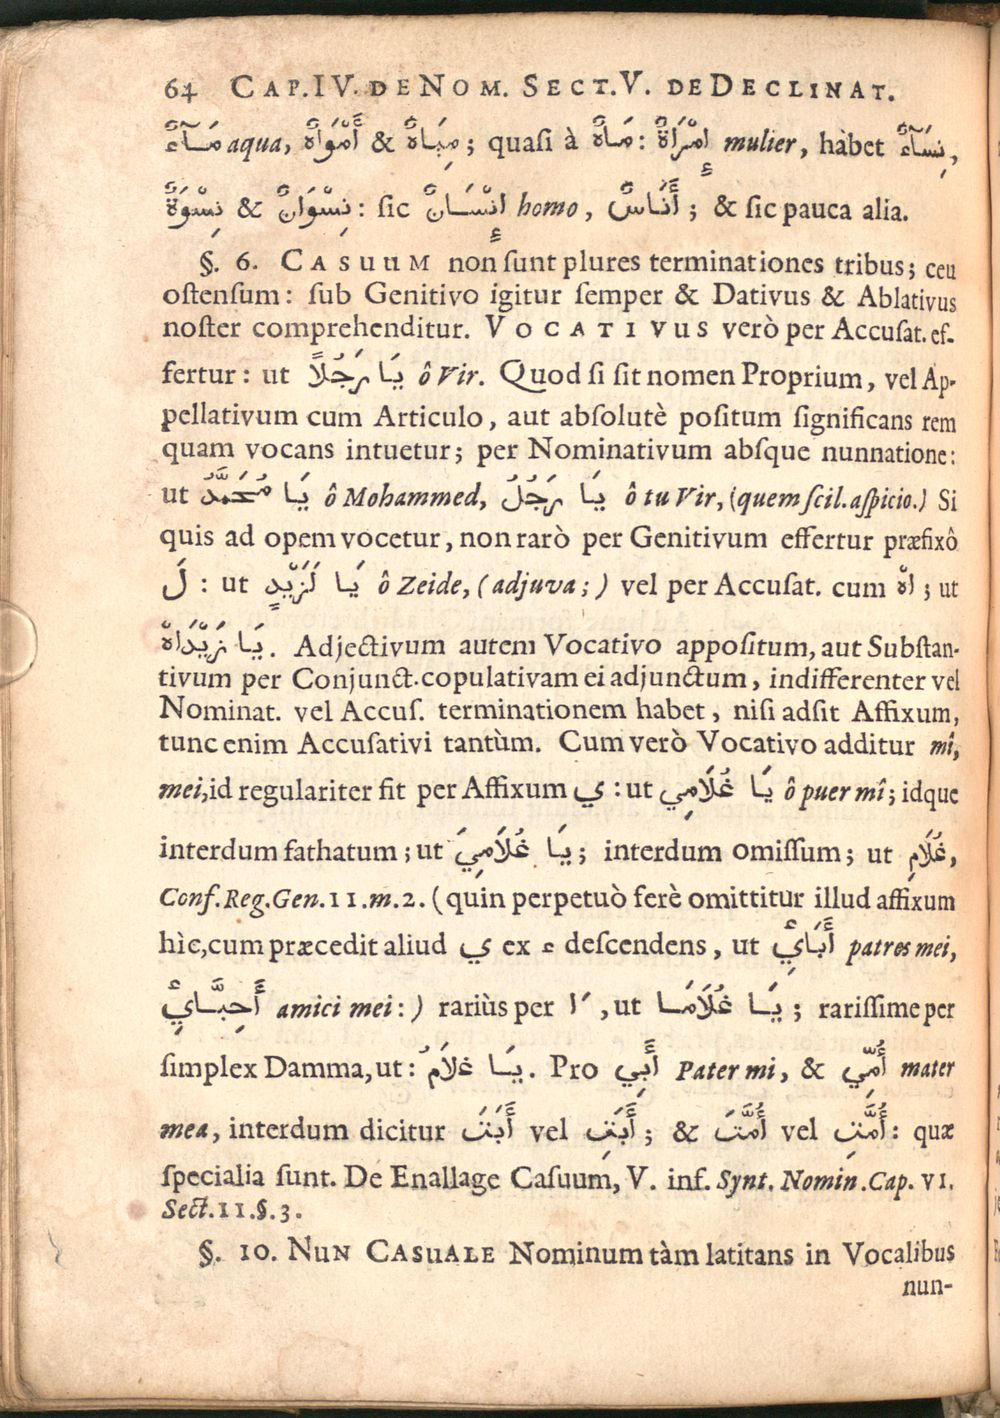 64 CAP.IV. DE NOM. SECT.V. DE DECLINAT.
مَآءٌ aqua, أَمْوَاهٌ & مِيَاهٌ; quaſi à مَاهٌ: إِمْرَاةٌ mulier, habet نِسَآءٌ,
نِسْوَةٌ & نِسْوَانٌ: ſic إِنْسَانٌ homo, أَنَاسٌ; & ſic pauca alia.
§. 6. CASUUM non ſunt plures terminationes tribus; ceu
oſtenſum: ſub Genitivo igitur ſemper & Dativus & Ablativus
noſter comprehenditur. VOCATIVUS verò per Accuſat. ef-
fertur: ut يَا رَجُلًا ô Vir. Quod ſi ſit nomen Proprium, vel Ap-
pellativum cum Articulo, aut abſolutè poſitum ſignificans rem
quam vocans intuetur; per Nominativum abſque nunnatione:
ut يَا مُحَمَّدُ ô Mohammed, يَا رَجُلُ ô tu Vir, (quem ſcil. aſpicio.) Si
quis ad opem vocetur, non rarò per Genitivum effertur præfixô
لَ: ut يَا لَزَيْدٍ ô Zeide, (adjuva;) vel per Accuſat. cum اهْ; ut
يَا زَيْدَاهْ. Adjectivum autem Vocativo appoſitum, aut Subſtan-
tivum per Conjunct. copulativam ei adjunctum, indifferenter vel
Nominat. vel Accuſ. terminationem habet, niſi adſit Affixum,
tunc enim Accuſativi tantùm. Cum verò Vocativo additur mî,
mei, id regulariter fit per Affixum ي: ut يَا غُلَامِي ô puer mî; idque
interdum fathatum; ut يَا غُلَامِيَ; interdum omiſſum; ut غُلَامِ,
Conf. Reg. Gen. 11. m. 2. (quin perpetuò ferè omittitur illud affixum
hîc, cum præcedit aliud ي ex ء deſcendens, ut أَبَائِ patres mei,
أَحِبَّائِ amici mei:) rariùs per ـَا, ut يَا غُلَامَا; rariſſime per
ſimplex Damma, ut: يَا غلَامُ. Pro أَبِي Pater mi, & أُمِّي mater
mea, interdum dicitur أَبَتَ vel أَبَتِ; & أُمَّتَ vel أُمَّتِ: quæ
ſpecialia ſunt. De Enallage Caſuum, V. inf. Synt. Nomin. Cap. VI.
Sect. 11. §. 3.
§. 10. NUN CASUALE Nominum tàm latitans in Vocalibus
nun-